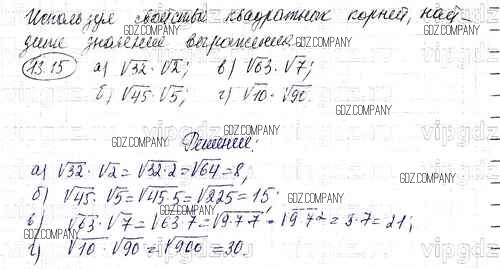 Используя свойства квадратных корней, най-
дите значение выражения
13.15 а) √32 · √2; в) √63 · √7;
б) √45 · √5; г) √10 · √90.
Решение:
а) √32 · √2 = √32·2 = √64 = 8,
б) √45 · √5 = √45·5 = √225 = 15;
в) √63 · √7 = √63·7 = √9·7·7 = √9·7² = 3·7 = 21;
г) √10 · √90 = √900 = 30.
GDZ.COMPANY
GDZ.COMPANY
GDZ.COMPANY
GDZ.COMPANY
GDZ.COMPANY
GDZ.COMPANY
GDZ.COMPANY
GDZ.COMPANY
GDZ.COMPANY
GDZ.COMPANY